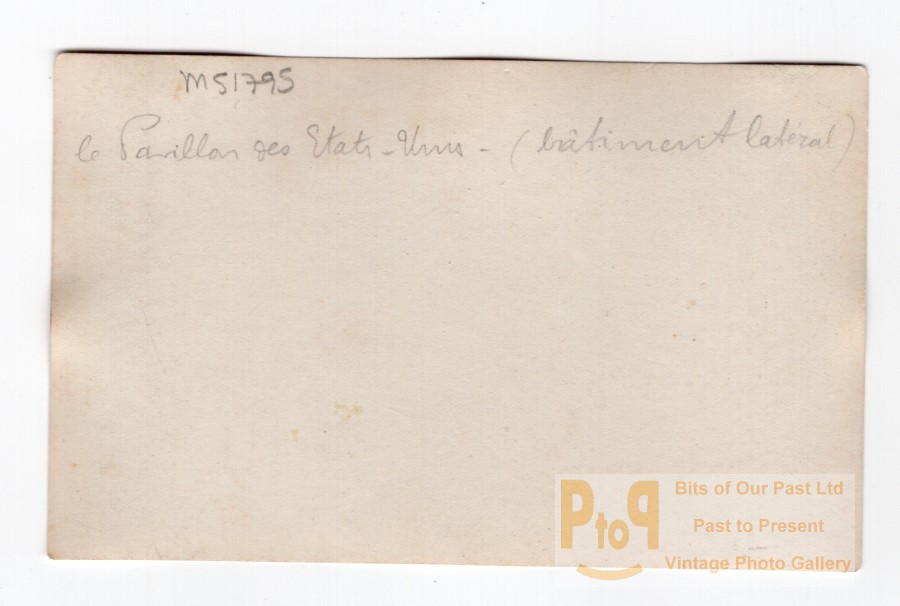 M51795
le Pavillon des Etats-Unis - (bâtiment latéral)
PtoP
Bits of Our Past Ltd
Past to Present
Vintage Photo Gallery